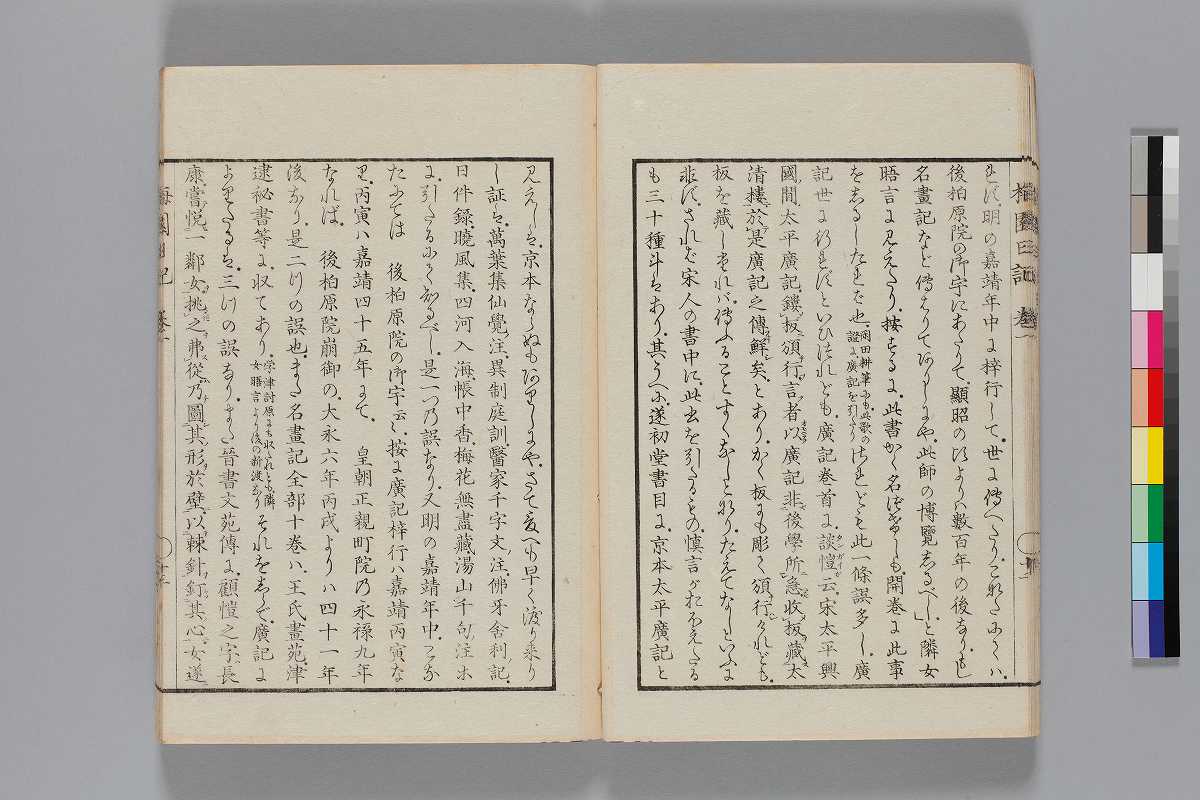 らず。明の嘉靖年中に梓行して。世に傳へたり。されたふくハ。
後柏原院の御宇にあたりて。顯昭の比よりハ數百年の後なり。もし
名畫記などに傳はりてありしにや。此師の博覽しるべし」と隣女
晤言に見えたり。按ずるに。此書かく名だゝしも。開卷に此事
をしるしたれど也。岡田耕筆にも此歌の
證に廣記を引たりされども此一條誤多し。廣
記世に行れずといひつれども。廣記卷首に。談愷云。宋太平興
國間。太平廣記。鏤板頒行。言者以廣記非後學所急收板藏太
清樓。於是廣記之傳鮮矣。とあり。かく板にも彫く頒行くれども。
板を藏しぬれバ。傳ふることすくなしとなり。たえてなしといふに
非ず。されど宋人の書中に。此書を引たるもの。慎言がおぼえたる
も三十種斗はあり。其うへに。遂初堂書目に。京本太平廣記と
見えしは。京本ならぬもありしにや。さて爰へも早く渡り來り
し証は。萬葉集仙覺注。異制庭訓。醫家千字文注。佛牙舍利記。
日件録。曉風集。四河入海。帳中香。梅花無盡藏。湯山千句注ホ
に。引たるにてしるべし。是一つ乃誤なり。又明の嘉靖年中。つるな
たふては　後柏原院の御宇云々。按に廣記梓行ハ嘉靖丙寅な
り。丙寅ハ嘉靖四十五年にて。　皇朝正親町院乃永祿九年
なれば。　後柏原院崩御の。大永六年丙戌よりハ四十一年
後なり。是二つの誤也。また名畫記全部十卷ハ。王氏畫苑。津
逮秘書等に收てあり。學津討原にも收たれとも隣
女晤言より後の新渡なりそれをしらで。廣記に
よりたるは。三つの誤なり。また晉書文苑傳に。顧愷之字長
康嘗悦一鄰女挑之弗從乃圖其形於壁以棘針釘其心女遂
梅園日記　卷一